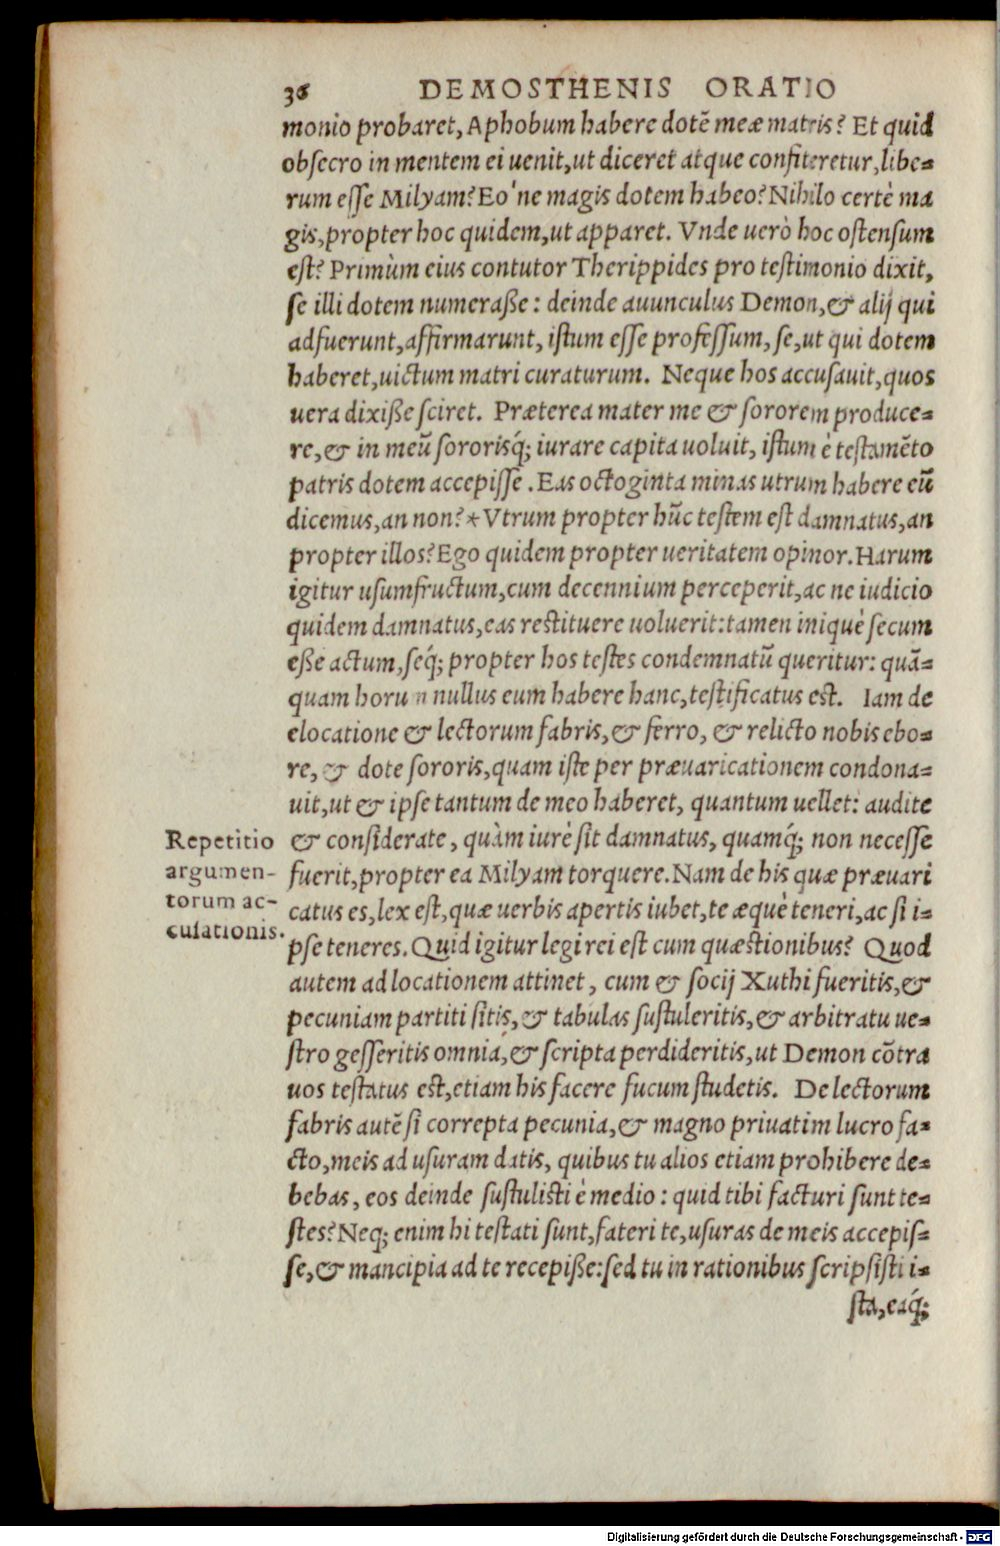 36 DEMOSTHENIS ORATIO
monio probaret, Aphobum habere dotē meæ matris? Et quid
obsecro in mentem ei uenit, ut diceret atque confiteretur, libe=
rum esse Milyam? Eo'ne magis dotem habeo? Nihilo certè ma
gis, propter hoc quidem, ut apparet. Vnde uerò hoc ostensum
est? Primùm eius contutor Therippides pro testimonio dixit,
se illi dotem numeraße: deinde auunculus Demon, & alij qui
adfuerunt, affirmarunt, istum esse professum, se, ut qui dotem
haberet, uictum matri curaturum. Neque hos accusauit, quos
uera dixiße sciret. Præterea mater me & sororem produce=
re, & in meū sororisq́; iurare capita uoluit, istum è testamēto
patris dotem accepisse. Eas octoginta minas utrum habere eū
dicemus, an non? * Vtrum propter hūc testem est damnatus, an
propter illos? Ego quidem propter ueritatem opinor. Harum
igitur usumfructum, cum decennium perceperit, ac ne iudicio
quidem damnatus, eas restituere uoluerit: tamen iniquè secum
eße actum, seq́; propter hos testes condemnatū queritur: quā=
quam horum nullus eum habere hanc, testificatus est. Iam de
elocatione & lectorum fabris, & ferro, & relicto nobis ebo=
re, & dote sororis, quam iste per præuaricationem condona=
uit, ut & ipse tantum de meo haberet, quantum uellet: audite
& considerate, quàm iurè sit damnatus, quamq́; non necesse
fuerit, propter ea Milyam torquere. Nam de his quæ præuari
catus es, lex est, quæ uerbis apertis iubet, te æquè teneri, ac si i=
pse teneres. Quid igitur legi rei est cum quæstionibus? Quod
autem ad locationem attinet, cum & socij Xuthi fueritis, &
pecuniam partiti sitis, & tabulas sustuleritis, & arbitratu ue=
stro gesseritis omnia, & scripta perdideritis, ut Demon cōtra
uos testatus est, etiam his facere fucum studetis. De lectorum
fabris autē si correpta pecunia, & magno priuatim lucro fa=
cto, meis ad usuram datis, quibus tu alios etiam prohibere de=
bebas, eos deinde sustulisti è medio: quid tibi facturi sunt te=
stes? Neq; enim hi testati sunt, fateri te, usuras de meis accepis=
se, & mancipia ad te recepiße: sed tu in rationibus scripsisti i=
sta, eaq́;
Repetitio
argumen-
torum ac-
cusationis.
Digitalisierung gefördert durch die Deutsche Forschungsgemeinschaft - DFG